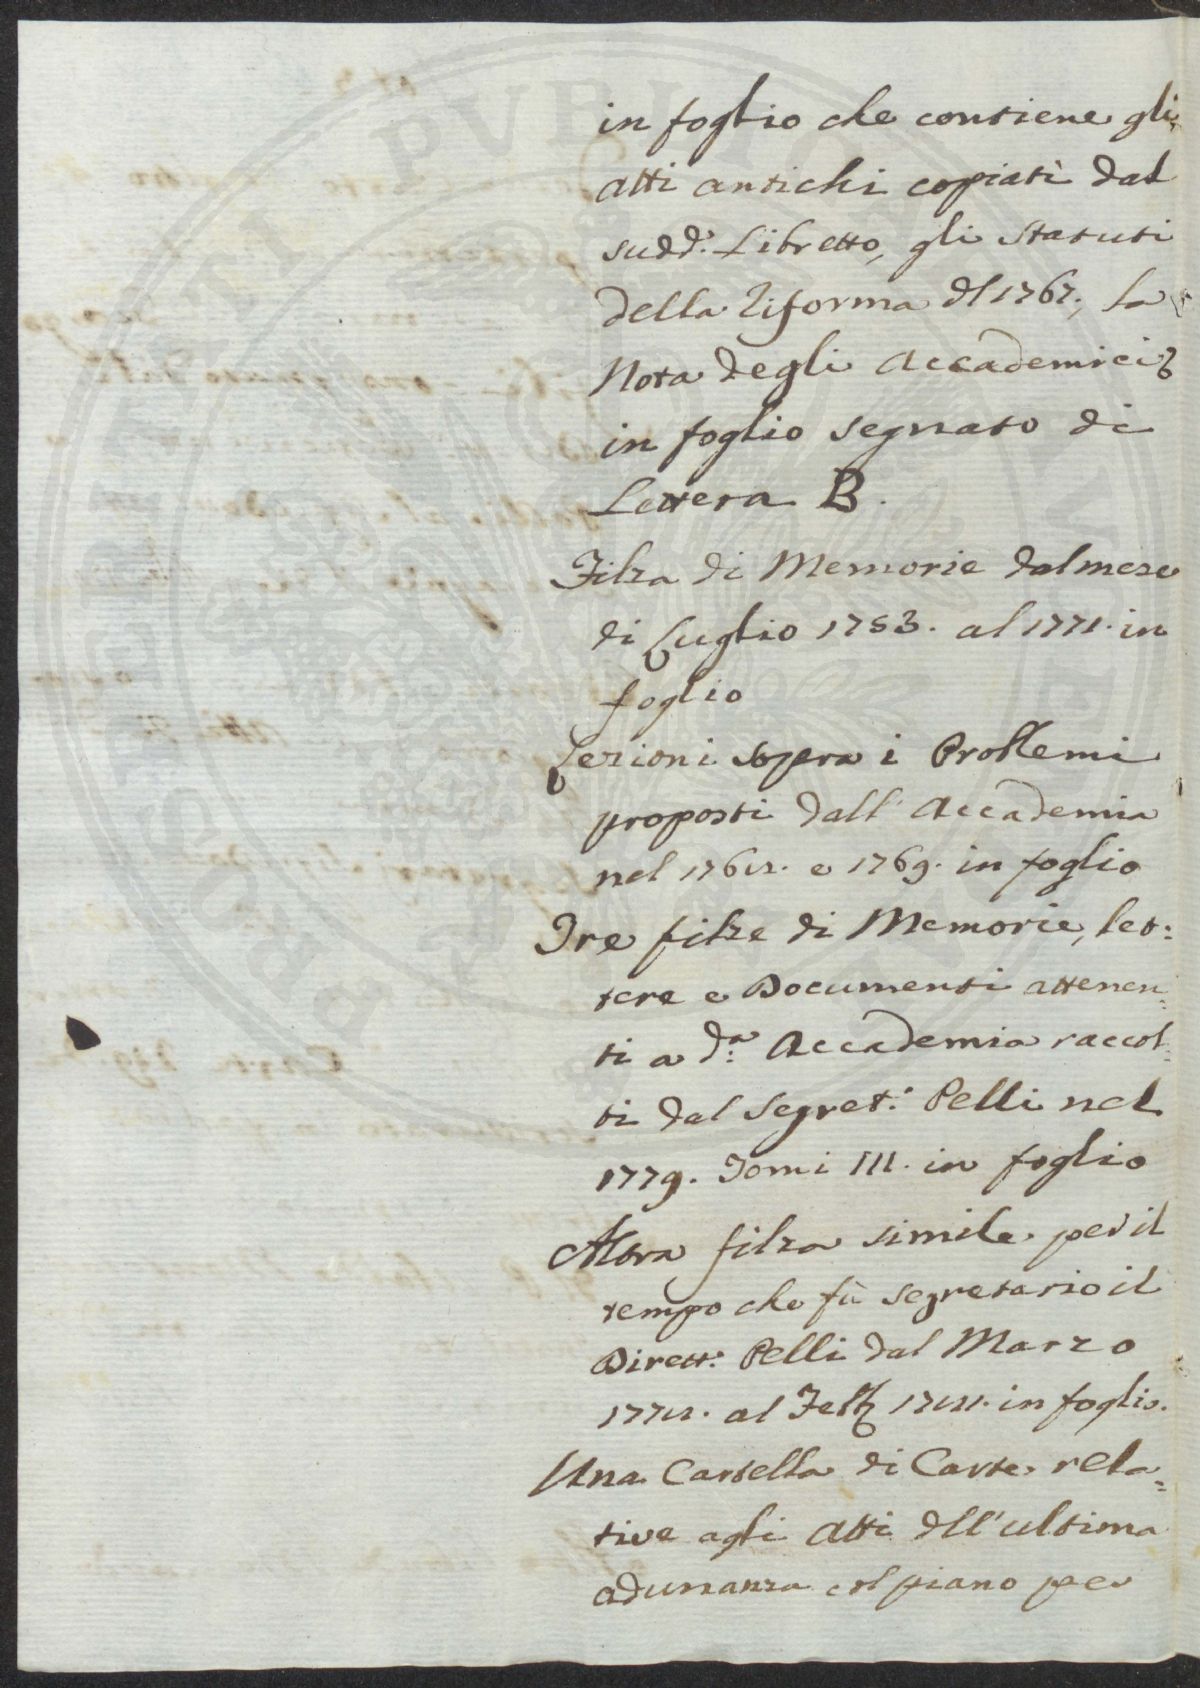 in foglio che contiene gli
atti antichi copiati dal
sudd.º Libretto, gli Statuti
della Riforma dl 1767., la
Nota degli Accademici
in foglio segnato di
Lettera B.
Filza di Memorie dal mese
di Luglio 1753. al 1771. in
foglio
Lezioni sopra i Problemi
proposti dall' Accademia
nel 1768. e 1769. in foglio
Tre filze di Memorie, let:
tere e Documenti attenen=
ti a d.ª Accademia raccol=
ti dal Segret.º Pelli nel
1779. Tomi III. in foglio
Altra filza simile per il
tempo che fù Segretario il
Dirett.e Pelli dal Marzo
1778. al in foglio.
Una Cartella di Carte rela=
tive agli Atti dll'ultima
adunanza col piano per